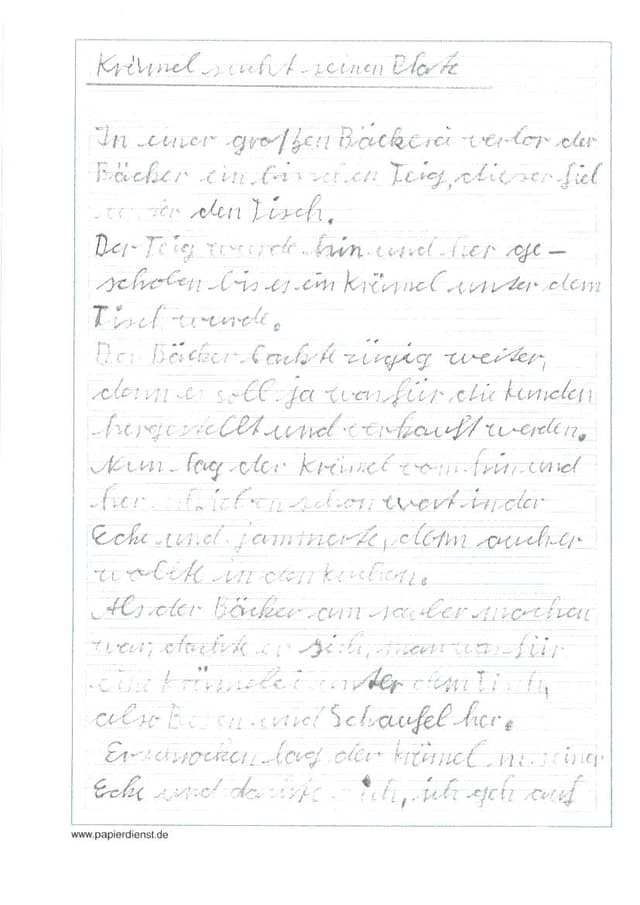 Krümel sucht seinen Platz
In einer großen Bäckerei verlor der
Bäcker ein bischen Teig, dieser fiel
unter den Tisch.
Der Teig wurde hin und her ge-
schoben bis es ein Krümel unter dem
Tisch wurde.
Der Bäcker backte zügig weiter,
denn es soll ja was für die Kunden
hergestellt und verkauft werden.
Nun lag der Krümel vom hin und
her schieben schon weit in der
Ecke und jammerte, denn auch er
wollte in den Kuchen.
Als der Bäcker am sauber machen
war, dachte er sich, man was für
eine Krümelei unter dem Tisch,
also Besen und Schaufel her.
Erschrocken lag der Krümel in seiner
Ecke und dachte ich, ich geh auf
www.papierdienst.de